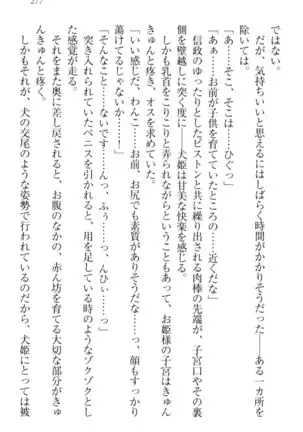 277
ではない。
だが、気持ちいいと思えるにはしばらく時間がかかりそうだった――ある一カ所を
除いては。
「あ……そこ、そこは……ひぐっ」
「あぁ……お前が子供を育てていたところの……近くだな」
信政のゆったりとしたピストンと共に繰り出される肉棒の先端が、子宮口やその裏
側を壁越しに突く度に――犬姫は甘美な快楽を感じる。
しかも乳首をこりこりと弄られながらということもあって、お姫様の子宮はきゅん
きゅんと疼き、オスを求めていた。
「いい感じだ、わんこ……お前、お尻でも素質がありそうだな……っ、顔もすっかり
蕩けてるじゃないか……！」
「そんなこと……ないです……んんっ、ふぅ……っ、んひぃ……っ」
突き入れられていたペニスを引かれると、用を足している時のようなゾクゾクとし
た感覚が走る。
それをまた奥に差し戻されると、お腹のなかの、赤ん坊を育てる大切な部分がきゅ
んきゅんっと疼く。
しかもそれが、犬の交尾のような姿勢で行われているのだから、犬姫にとっては被